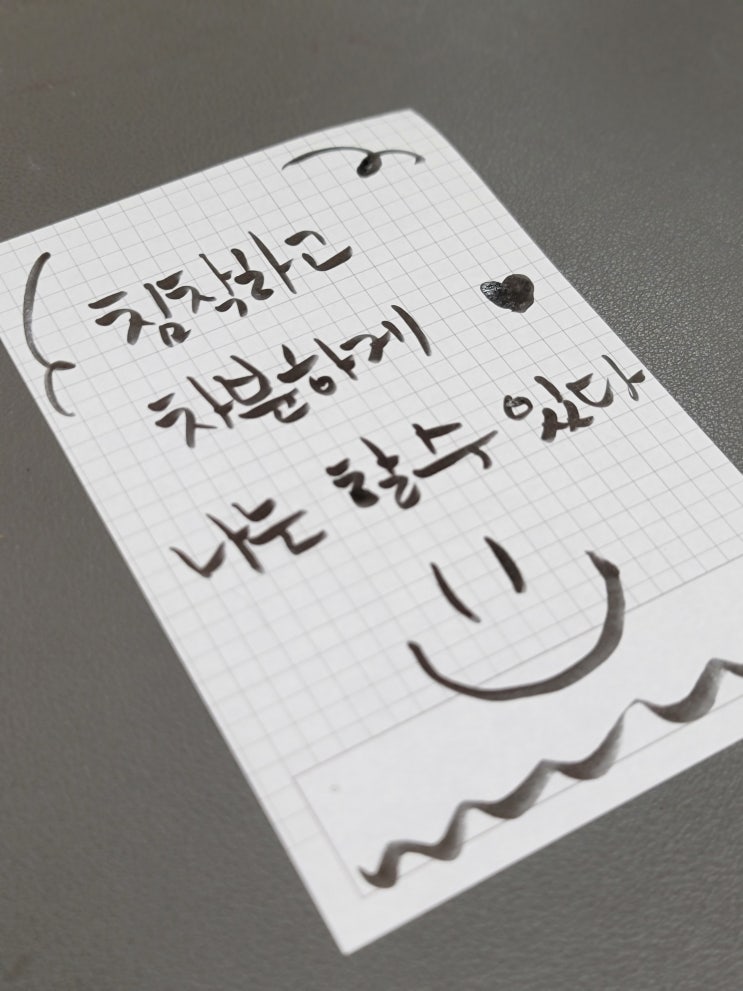 침착하고
차분하게
나는 할수 있다